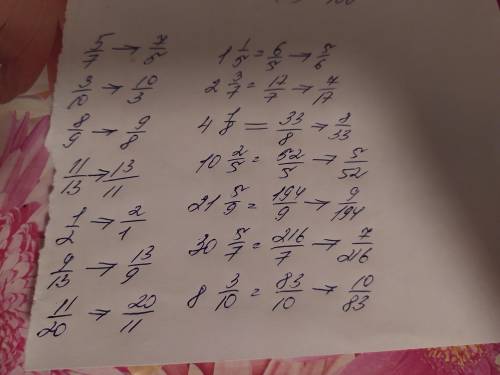 5/7 → 7/5
3/10 → 10/3
8/9 → 9/8
11/13 → 13/11
1/2 → 2/1
9/13 → 13/9
11/20 → 20/11
1 1/5 = 6/5 → 5/6
2 3/7 = 17/7 → 7/17
4 1/8 = 33/8 → 8/33
10 2/5 = 52/5 → 5/52
21 5/9 = 194/9 → 9/194
30 5/7 = 216/7 → 7/216
8 3/10 = 83/10 → 10/83